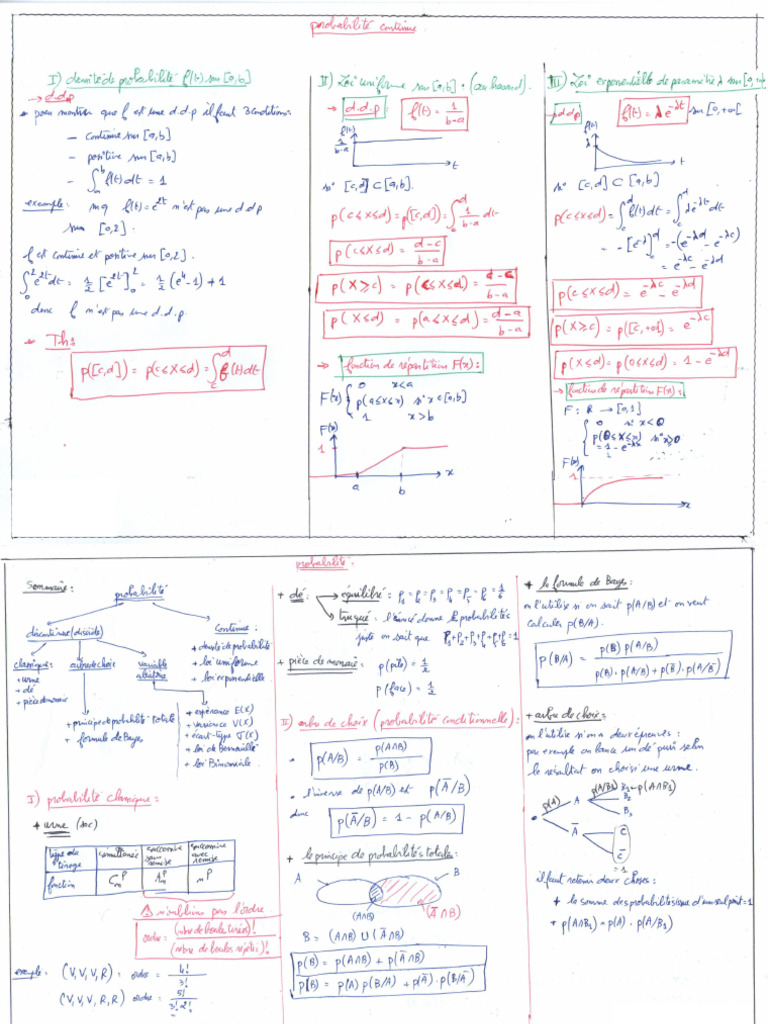 probabilité continue
I) densité de probabilité f(t) sur [a,b]
→ d.d.p
• pour montrer que f est une d.d.p il faut 3 conditions:
– continue sur [a,b]
– positive sur [a,b]
– ∫_a^b f(t)dt = 1
exemple: mq f(t)=e^{2t} n'est pas une d.d.p
sur [0,2].
f est continue et positive sur [0,2].
∫_0^2 e^{2t}dt = 1/2 [e^{2t}]_0^2 = 1/2 (e^4-1) ≠ 1
donc f n'est pas une d.d.p.
• Th:
p([c,d]) = p(c≤X≤d) = ∫_c^d f(t)dt
II) Loi uniforme sur [a,b] • (au hasard).
→ d.d.p: f(t) = 1/(b-a)
f(t)
1/(b-a)
t
si [c,d] ⊂ [a,b].
p(c≤X≤d) = p([c,d]) = ∫_c^d 1/(b-a) dt
p(c≤X≤d) = (d-c)/(b-a)
p(X≥c) = p(c≤X≤d) = (d-c)/(b-a)
p(X≤d) = p(a≤X≤d) = (d-a)/(b-a)
→ fonction de répartition F(x):
F(x) { 0 x<a
p(a≤X≤x) si x∈[a,b]
1 x>b
F(x)
1
a b x
III) Loi exponentielle de paramètre λ sur [0,+∞[
→ d.d.p f(t) = λe^{-λt} sur [0,+∞[
f(t)
λ
t
si [c,d] ⊂ [a,b]
p(c≤X≤d) = ∫_c^d f(t)dt = ∫_c^d λe^{-λt}dt
= -[e^{-λt}]_c^d = -(e^{-λd} - e^{-λc})
= e^{-λc} - e^{-λd}
p(c≤X≤d) = e^{-λc} - e^{-λd}
p(X≥c) = p([c,+∞[) = e^{-λc}
p(X≤d) = p(0≤X≤d) = 1-e^{-λd}
→ fonction de répartition F(x):
F: R → [0,1]
{ 0 si x<0
p(0≤X≤x) si x≥0
= 1-e^{-λx}
F(x)
1
x
probabilité.
Sommaire:
probabilité
discontinue (discrète)
Continue:
+ densité de probabilité
+ loi uniforme
+ loi exponentielle
classique:
+ urne
+ dé
+ pièce de monnaie
arbre de choix
variable aléatoire
+ principe de probabilité totale
+ formule de Bayes
+ espérance E(X)
+ variance V(X)
+ écart-type σ(X)
+ loi de Bernoulli
+ loi Binomiale
I) probabilité classique:
+ urne (sac)
type de tirage | simultanée | successive sans remise | successive avec remise
fonction | C_n^p | A_n^p | n^p
⚠ n'oublions pas l'ordre
ordre = (nbre de boules tirées)! / (nbre de boules répétées)!
exemple: (V,V,V,R) = ordre = 4!/3!
(V,V,V,R,R) = ordre = 5!/(3!2!)
+ dé: → équilibré: P1=P2=P3=P4=P5=P6=1/6
→ truqué: l'énoncé donne les probabilités
juste on sait que P1+P2+P3+P4+P5+P6=1
+ pièce de monnaie: p(pile) = 1/2
p(face) = 1/2
II) arbre de choix (probabilité conditionnelle):
• p(A/B) = p(A∩B)/p(B)
• l'inverse de p(A/B) est p(Ā/B)
donc p(Ā/B) = 1 - p(A/B)
+ le principe de probabilités totales:
A B
(A∩B) (Ā∩B)
B = (A∩B) ∪ (Ā∩B)
p(B) = p(A∩B) + p(Ā∩B)
p(B) = p(A).p(B/A) + p(Ā).p(B/Ā)
+ la formule de Bayes:
on l'utilise si on sait p(A/B) et on veut
calculer p(B/A).
+ arbre de choix:
on l'utilise si on a deux épreuves:
par exemple on lance un dé puis selon
le résultat on choisi une urne.
p(A) A B1 → p(A∩B1)
B2
B3
Ā C
C̄
=1
il faut retenir deux choses:
+ la somme des probabilités issue d'un seul point = 1
+ p(A∩B1) = p(A).